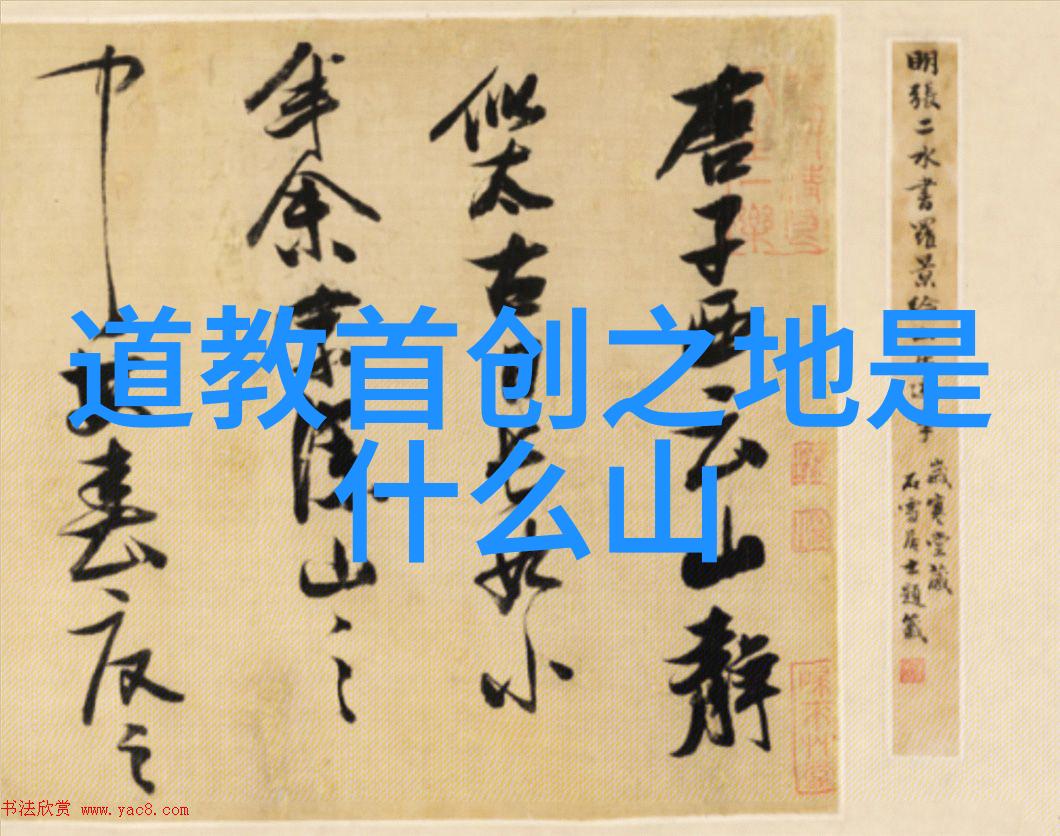 道教首创之地是
什么山
明張二水書羅景
歲寒堂藏
石雪居士題籤
唐子西云山靜
似太古日長如小
年余家深山之
中每春夏之
书法欣赏 www.yac8.com